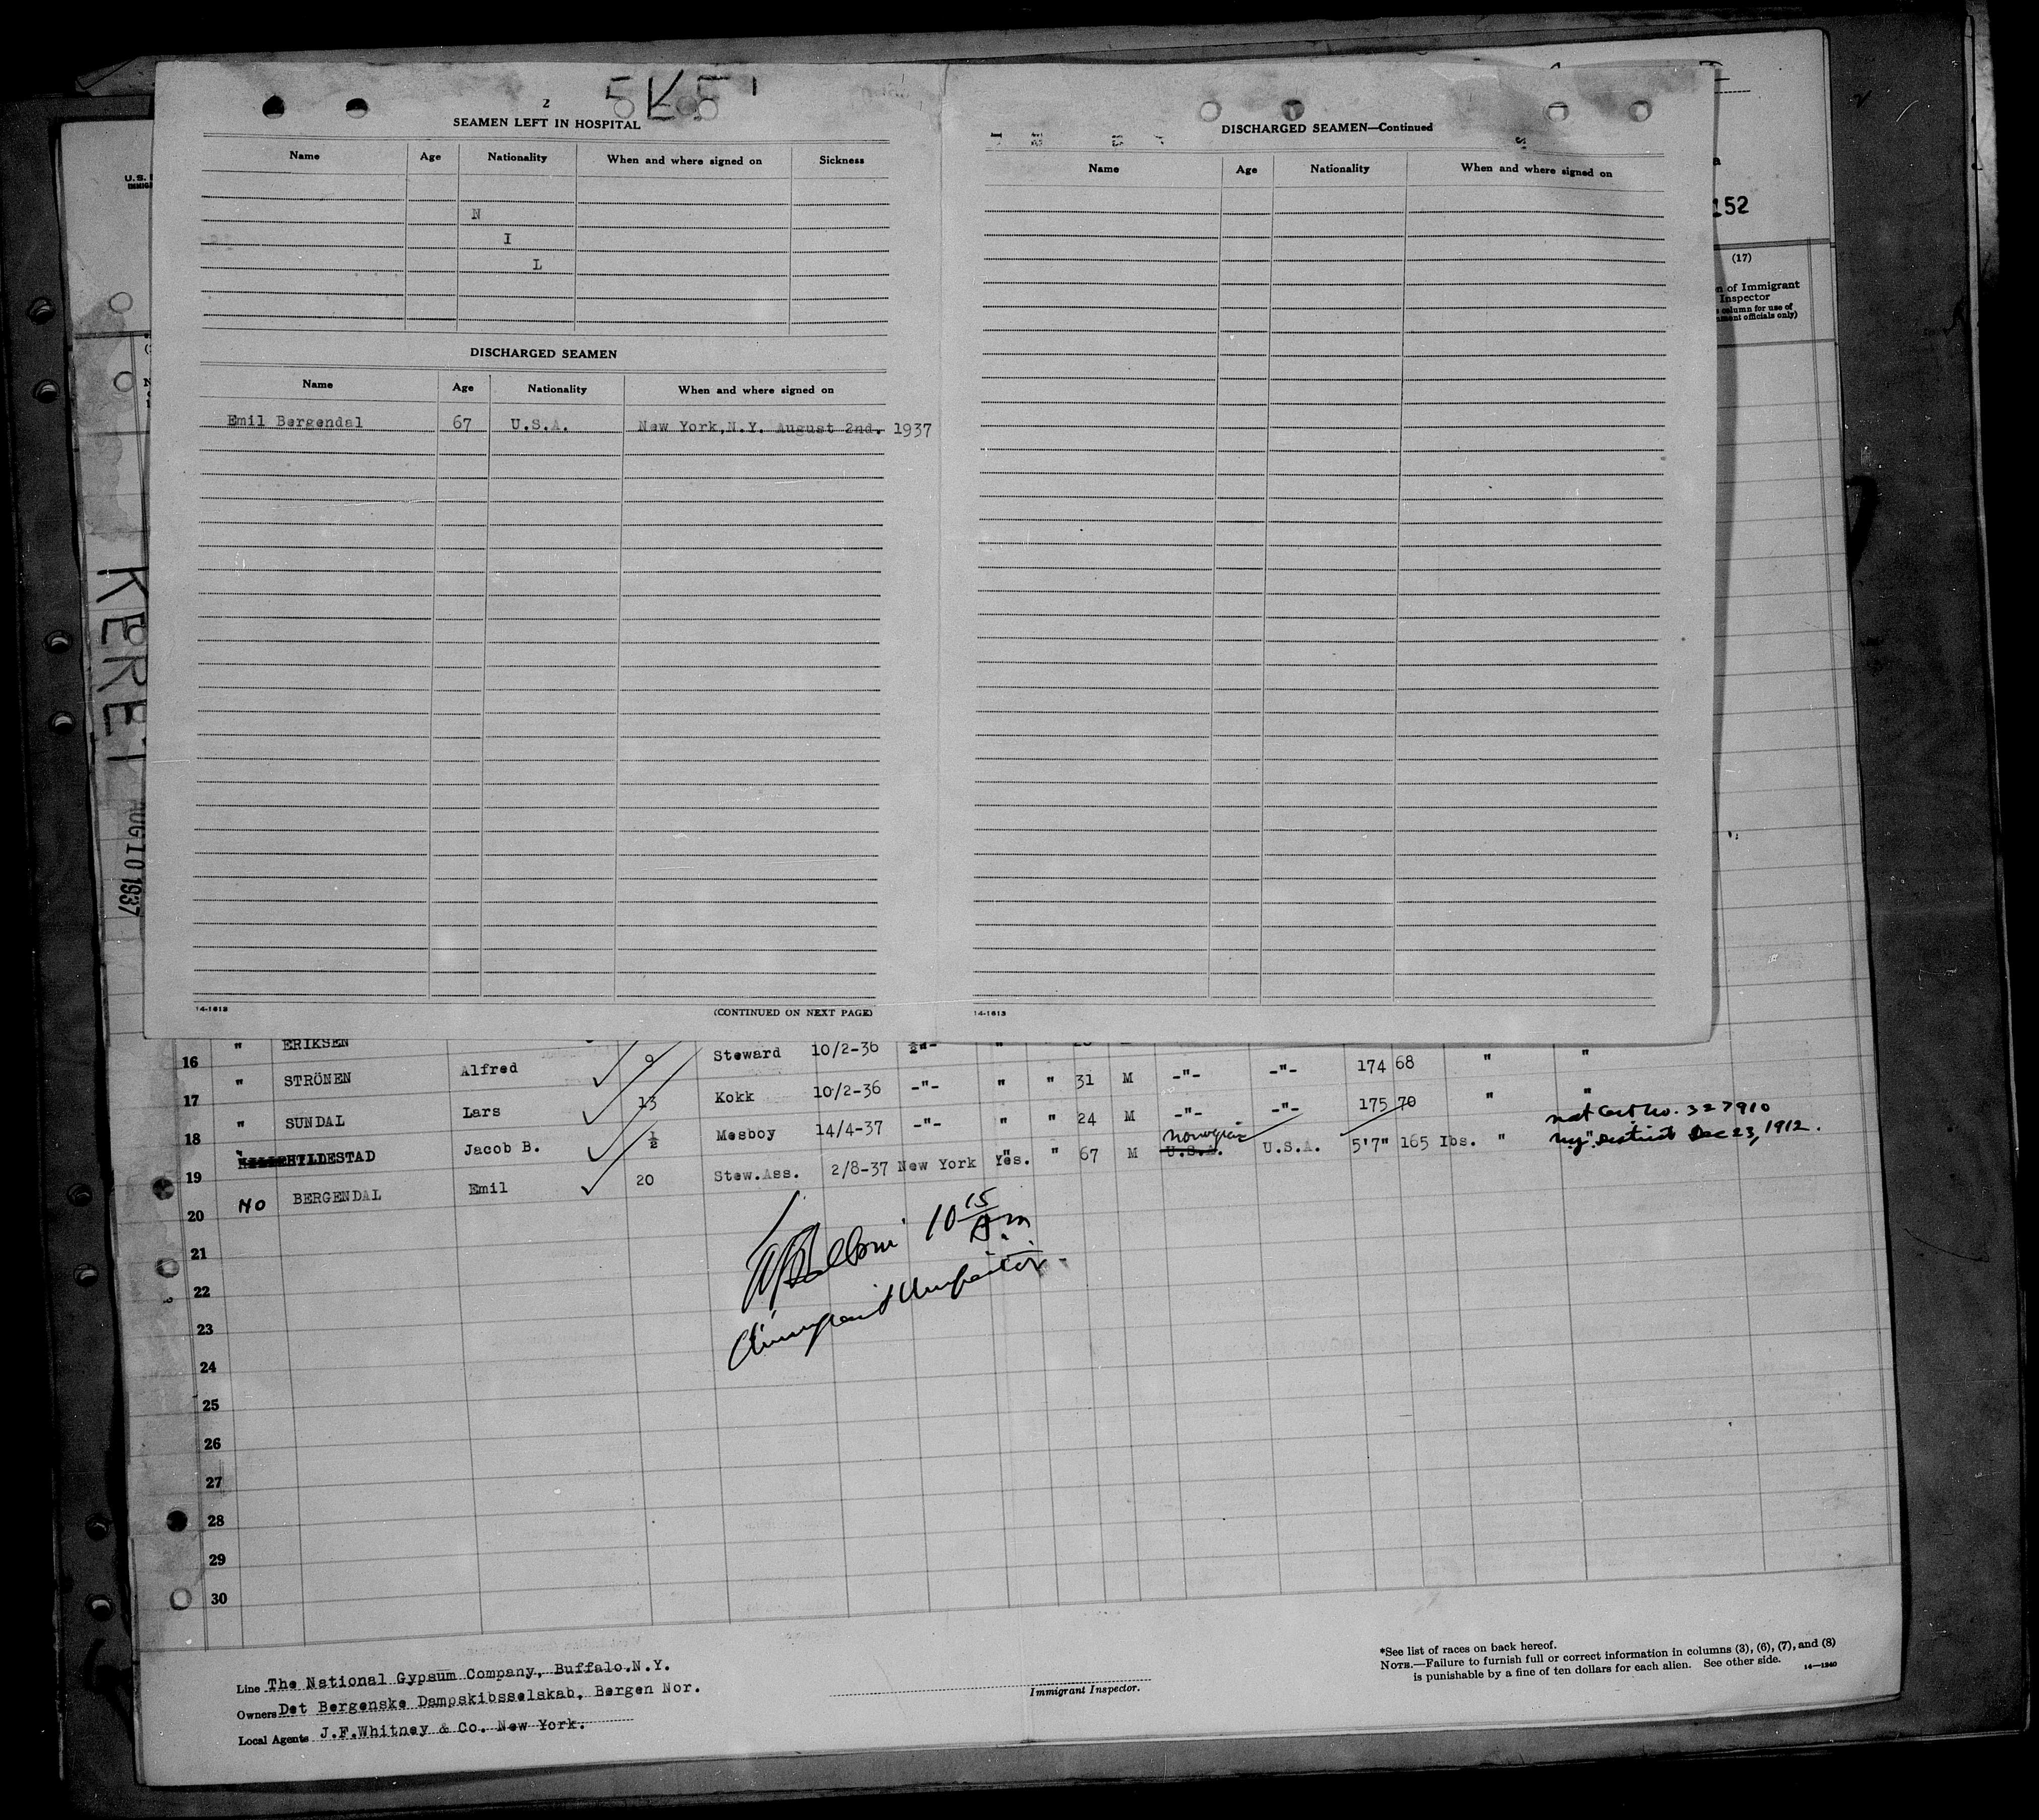 2
SEAMEN LEFT IN HOSPITAL
Name Age Nationality When and where signed on Sickness
N
I
L
DISCHARGED SEAMEN
Name Age Nationality When and where signed on
Emil Bergendal 67 U.S.A. New York,N.Y. August 2nd. 1937
14-1613
(CONTINUED ON NEXT PAGE)
DISCHARGED SEAMEN—Continued
Name Age Nationality When and where signed on
14-1613
U.S.
152
(17)
of Immigrant
Inspector
column for use of
officials only)
AUG 10 1937
16 " ERIKSEN Alfred 9 Steward 10/2-36 " " M 174 68 " "
17 " STRÖNEN Lars 13 Kokk 10/2-36 -"- " " 31 M -"- -"- 175 70 " "
18 " SUNDAL Jacob B. ½ Mesboy 14/4-37 -"- " " 24 M -"- -"-
19 HILDESTAD
20 NO BERGENDAL Emil 20 Stew.Ass. 2/8-37 New York Yes. " 67 M U.S.A. Norwegian U.S.A. 5'7" 165 Ibs. "
nat Cert No. 327910
N.Y. District Dec 23, 1912.
10 15 A.m
Immigrant Inspector
21
22
23
24
25
26
27
28
29
30
Line The National Gypsum Company, Buffalo.N.Y.
Owners Det Bergenske Dampskibsselskab, Bergen Nor.
Local Agents J.F.Whitney & Co. New York.
Immigrant Inspector.
*See list of races on back hereof.
NOTE.—Failure to furnish full or correct information in columns (3), (6), (7), and (8)
is punishable by a fine of ten dollars for each alien. See other side.
14—1240